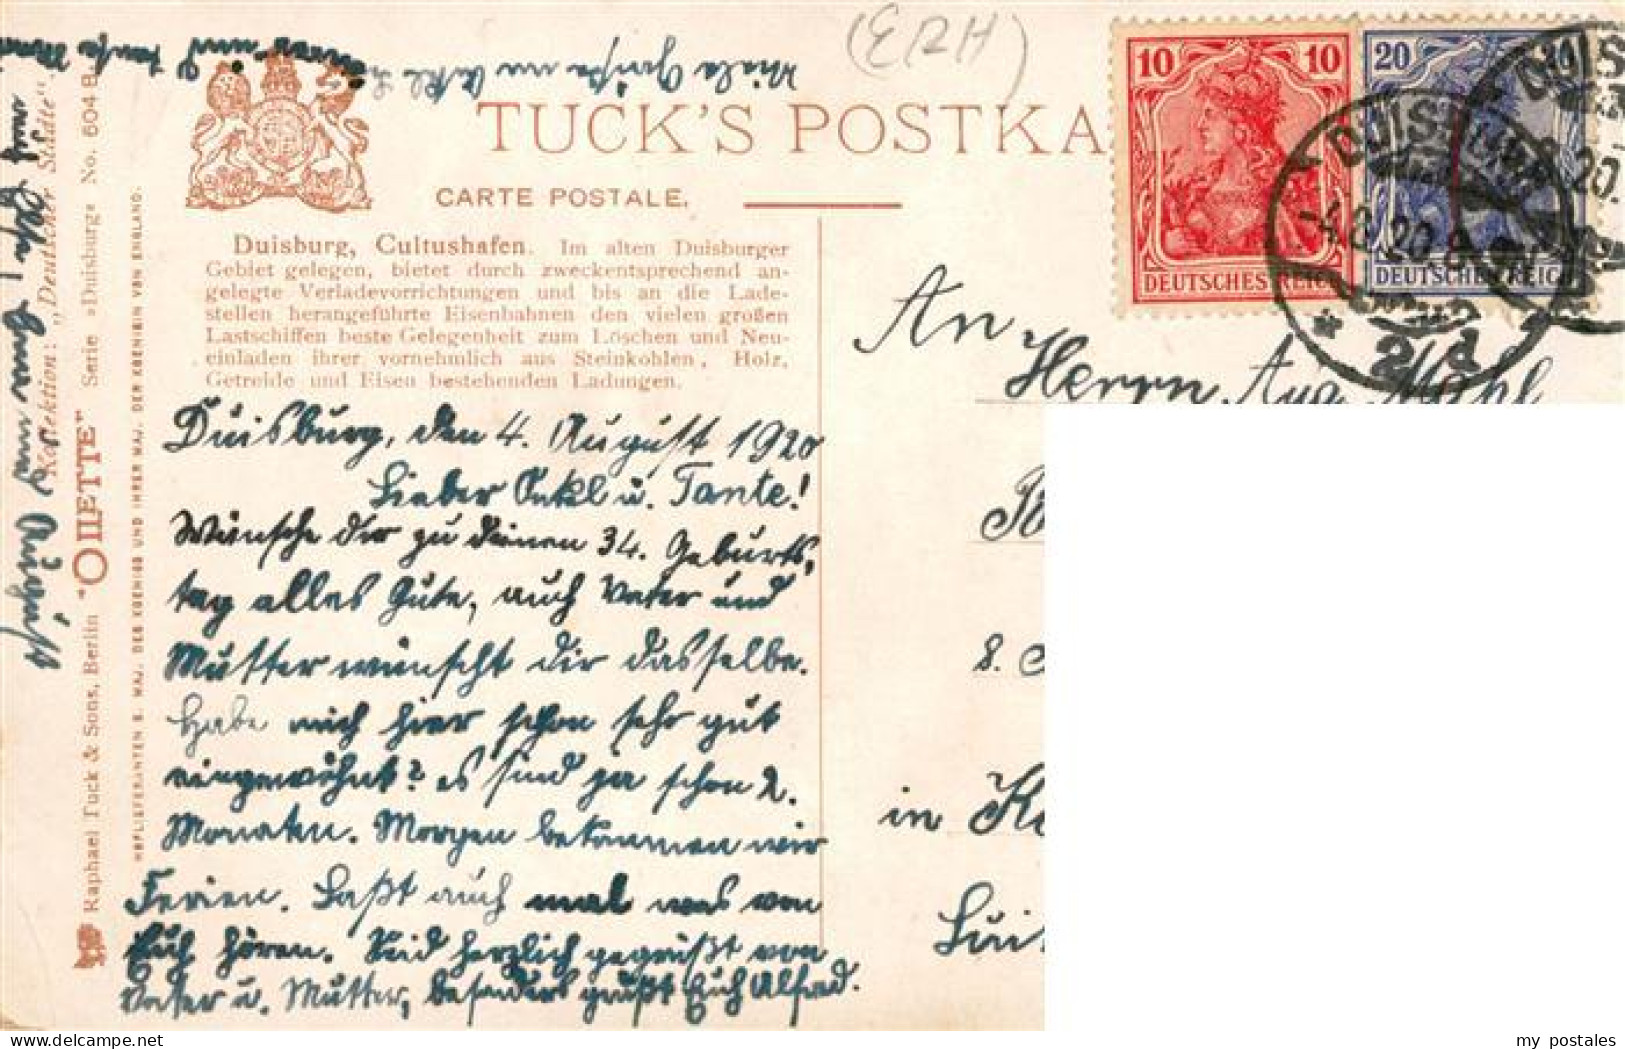 (ERH)
TUCK'S POSTKA
CARTE POSTALE.
Duisburg, Cultushafen. Im alten Duisburger
Gebiet gelegen, bietet durch zweckentsprechend an-
gelegte Verladevorrichtungen und bis an die Lade-
stellen herangeführte Eisenbahnen den vielen großen
Lastschiffen beste Gelegenheit zum Löschen und Neu-
einladen ihrer vornehmlich aus Steinkohlen, Holz,
Getreide und Eisen bestehenden Ladungen.
Duisburg, den 4. August 1920
Lieber Onkl u. Tante!
Wünsche dir zu deinen 34. Geburts-
tag alles Gute, auch Vater und
Mutter wünscht dir dasselbe.
Habe mich hier schon sehr gut
eingewöhnt? es sind ja schon 2.
Monaten. Morgen bekommen wir
Ferien. Laßt auch mal was von
Euch hören. Seid herzlich gegrüßt von
Vater u. Mutter, besonders grüßt Euch Alfred.
Viele Grüße an Onkl
und Tante
auch August
Kollektion: „Deutscher Städte".
Serie »Duisburg« No. 604 B.
Raphael Tuck & Sons, Berlin "OILETTE"
HOFLIEFERANTEN S. MAJ. DES KOENIGS UND IHRER MAJ. DER KOENIGIN VON ENGLAND.
10 10
DEUTSCHES REICH
20 20
DEUTSCHES REICH
DUISBURG
-4.8.20.
* 2 d
An
Herrn Aug. Mohl
8.
in
my postales